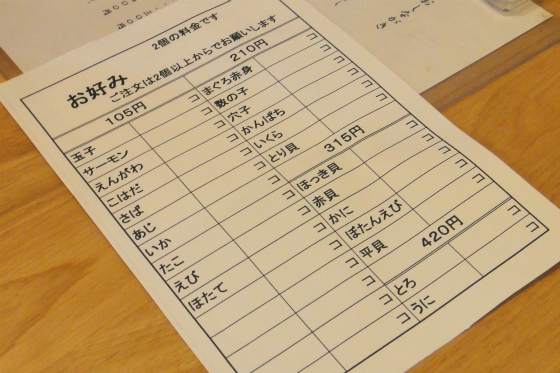 お好み
2個の料金です
ご注文は2個以上からでお願いします
105円
玉子 コ
サーモン コ
えんがわ コ
こはだ コ
さば コ
あじ コ
いか コ
たこ コ
えび コ
ほたて コ
コ
コ
210円
まぐろ赤身 コ
数の子 コ
穴子 コ
かんぱち コ
いくら コ
とり貝 コ
315円
ほっき貝 コ
赤貝 コ
かに コ
ぼたんえび コ
平貝 コ
420円
とろ コ
うに コ